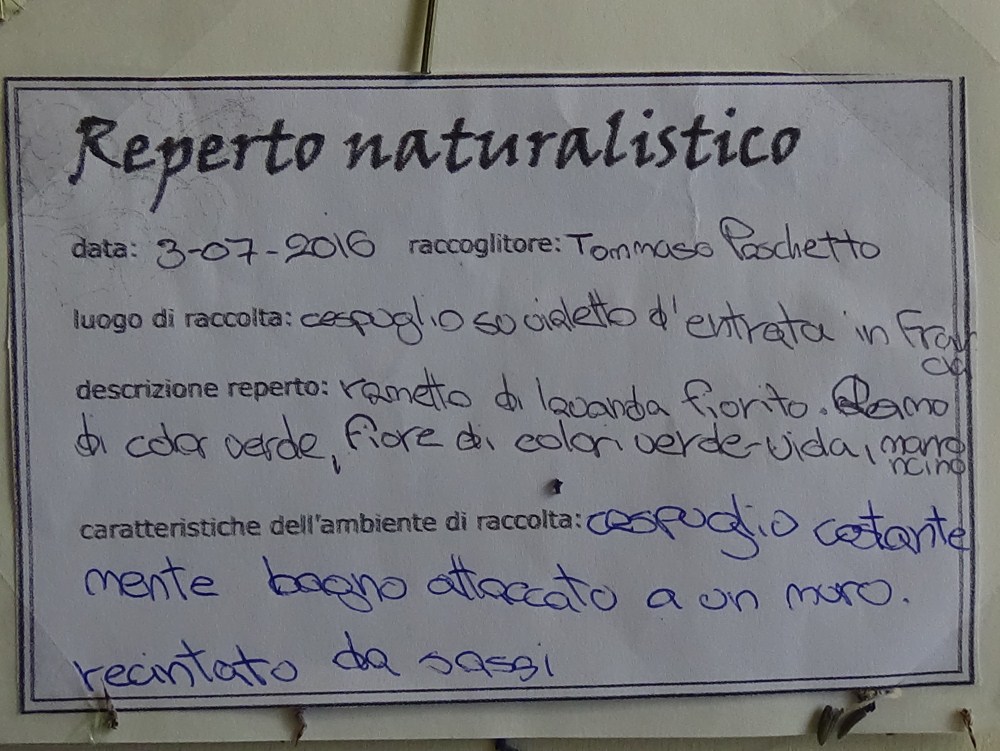 Reperto naturalistico
data: 3-07-2016 raccoglitore: Tommaso Paschetto
luogo di raccolta: cespuglio su vialetto d'entrata in Fran
cia
descrizione reperto: rametto di lavanda fiorito. Ramo
di color verde, fiore di colori verde-viola, marro
ncino
caratteristiche dell'ambiente di raccolta: cespuglio costante
mente bagno attaccato a un muro.
recintato da sassi